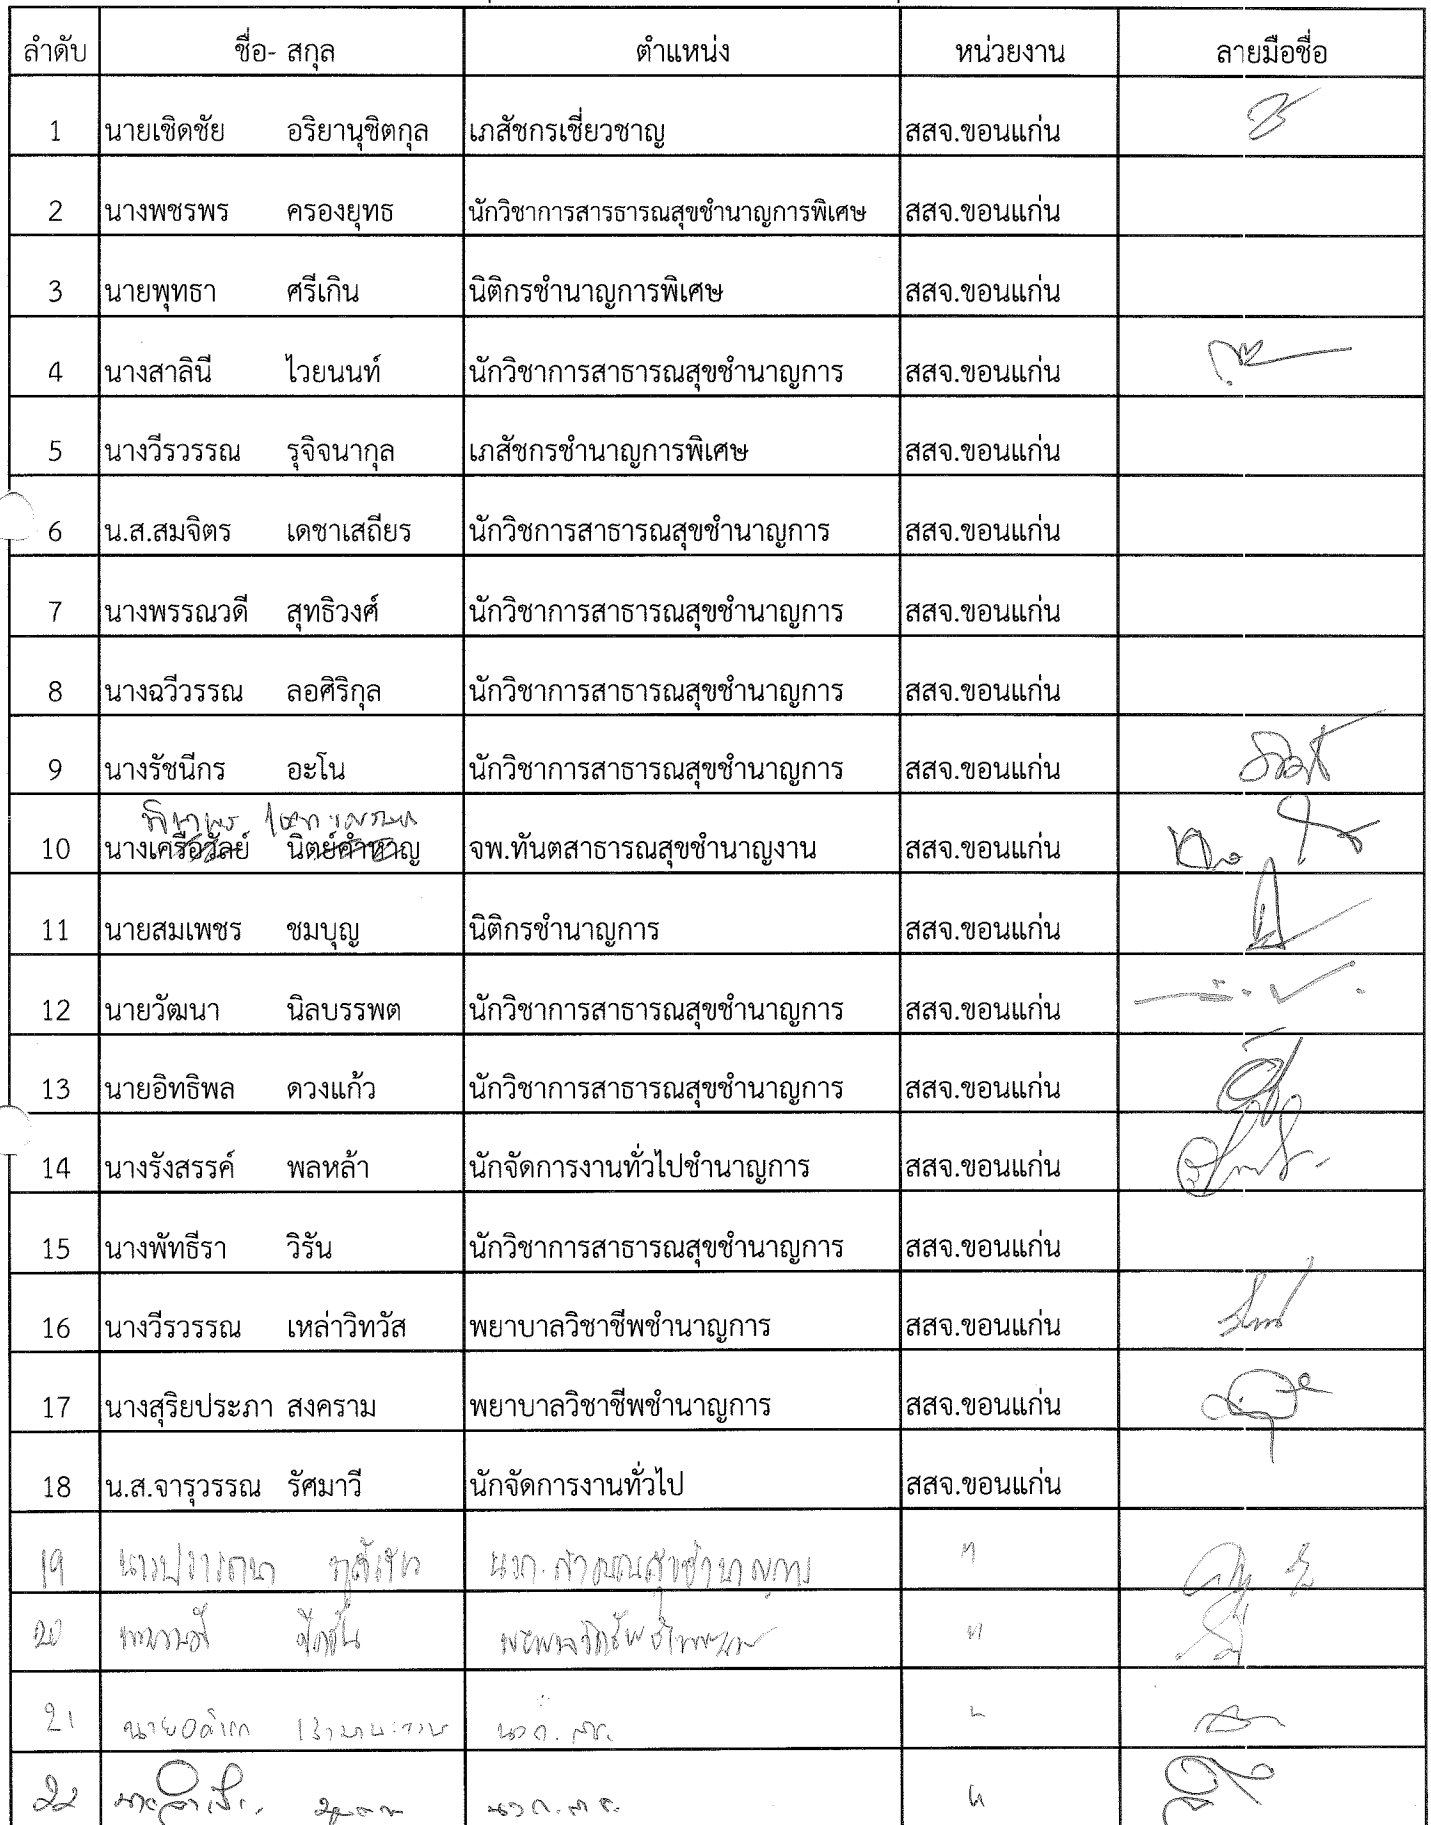 ลำดับ ชื่อ- สกุล ตำแหน่ง หน่วยงาน ลายมือชื่อ
1 นายเชิดชัย อริยานุชิตกุล เภสัชกรเชี่ยวชาญ สสจ.ขอนแก่น
2 นางพชรพร ครองยุทธ นักวิชาการสารธารณสุขชำนาญการพิเศษ สสจ.ขอนแก่น
3 นายพุทธา ศรีเกิน นิติกรชำนาญการพิเศษ สสจ.ขอนแก่น
4 นางสาลินี ไวยนนท์ นักวิชาการสาธารณสุขชำนาญการ สสจ.ขอนแก่น
5 นางวีรวรรณ รุจิจนากุล เภสัชกรชำนาญการพิเศษ สสจ.ขอนแก่น
6 น.ส.สมจิตร เดชาเสถียร นักวิชการสาธารณสุขชำนาญการ สสจ.ขอนแก่น
7 นางพรรณวดี สุทธิวงศ์ นักวิชาการสาธารณสุขชำนาญการ สสจ.ขอนแก่น
8 นางฉวีวรรณ ลอศิริกุล นักวิชาการสาธารณสุขชำนาญการ สสจ.ขอนแก่น
9 นางรัชนีกร อะโน นักวิชาการสาธารณสุขชำนาญการ สสจ.ขอนแก่น
10 นางเครือวัลย์ นิตย์คำหาญ จพ.ทันตสาธารณสุขชำนาญงาน สสจ.ขอนแก่น
11 นายสมเพชร ชมบุญ นิติกรชำนาญการ สสจ.ขอนแก่น
12 นายวัฒนา นิลบรรพต นักวิชาการสาธารณสุขชำนาญการ สสจ.ขอนแก่น
13 นายอิทธิพล ดวงแก้ว นักวิชาการสาธารณสุขชำนาญการ สสจ.ขอนแก่น
14 นางรังสรรค์ พลหล้า นักจัดการงานทั่วไปชำนาญการ สสจ.ขอนแก่น
15 นางพัทธีรา วิรัน นักวิชาการสาธารณสุขชำนาญการ สสจ.ขอนแก่น
16 นางวีรวรรณ เหล่าวิทวัส พยาบาลวิชาชีพชำนาญการ สสจ.ขอนแก่น
17 นางสุริยประภา สงคราม พยาบาลวิชาชีพชำนาญการ สสจ.ขอนแก่น
18 น.ส.จารุวรรณ รัศมาวี นักจัดการงานทั่วไป สสจ.ขอนแก่น
19 นางปรารถนา นวก.สาธารณสุขชำนาญการ "
20 "
21 นวก. สธ. "
22 นวก. สธ. "